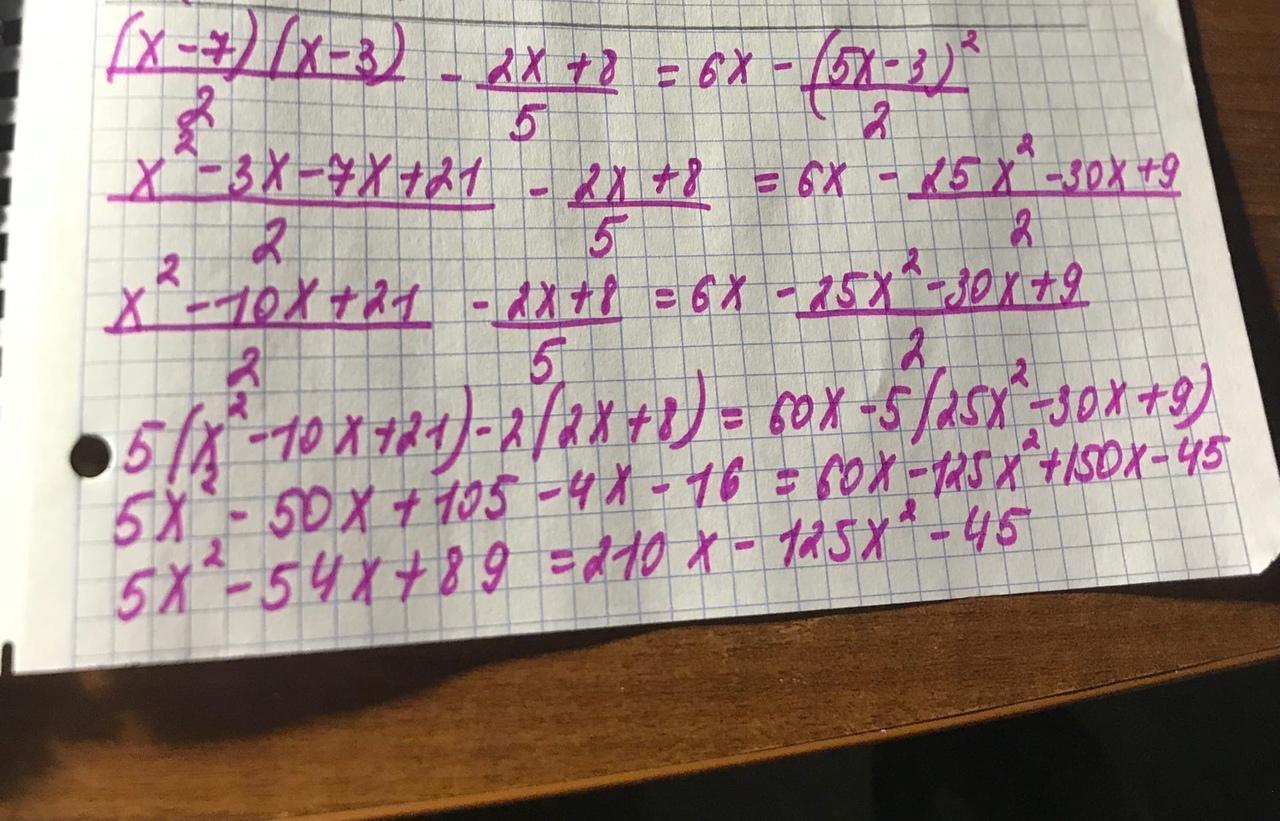 (x-7)(x-3)/2 - 2x+8/5 = 6x - (5x-3)²/2
x²-3x-7x+21/2 - 2x+8/5 = 6x - 25x²-30x+9/2
x²-10x+21/2 - 2x+8/5 = 6x - 25x²-30x+9/2
5(x²-10x+21)-2(2x+8) = 60x-5(25x²-30x+9)
5x²-50x+105-4x-16 = 60x-125x²+150x-45
5x²-54x+89 = 210x-125x²-45